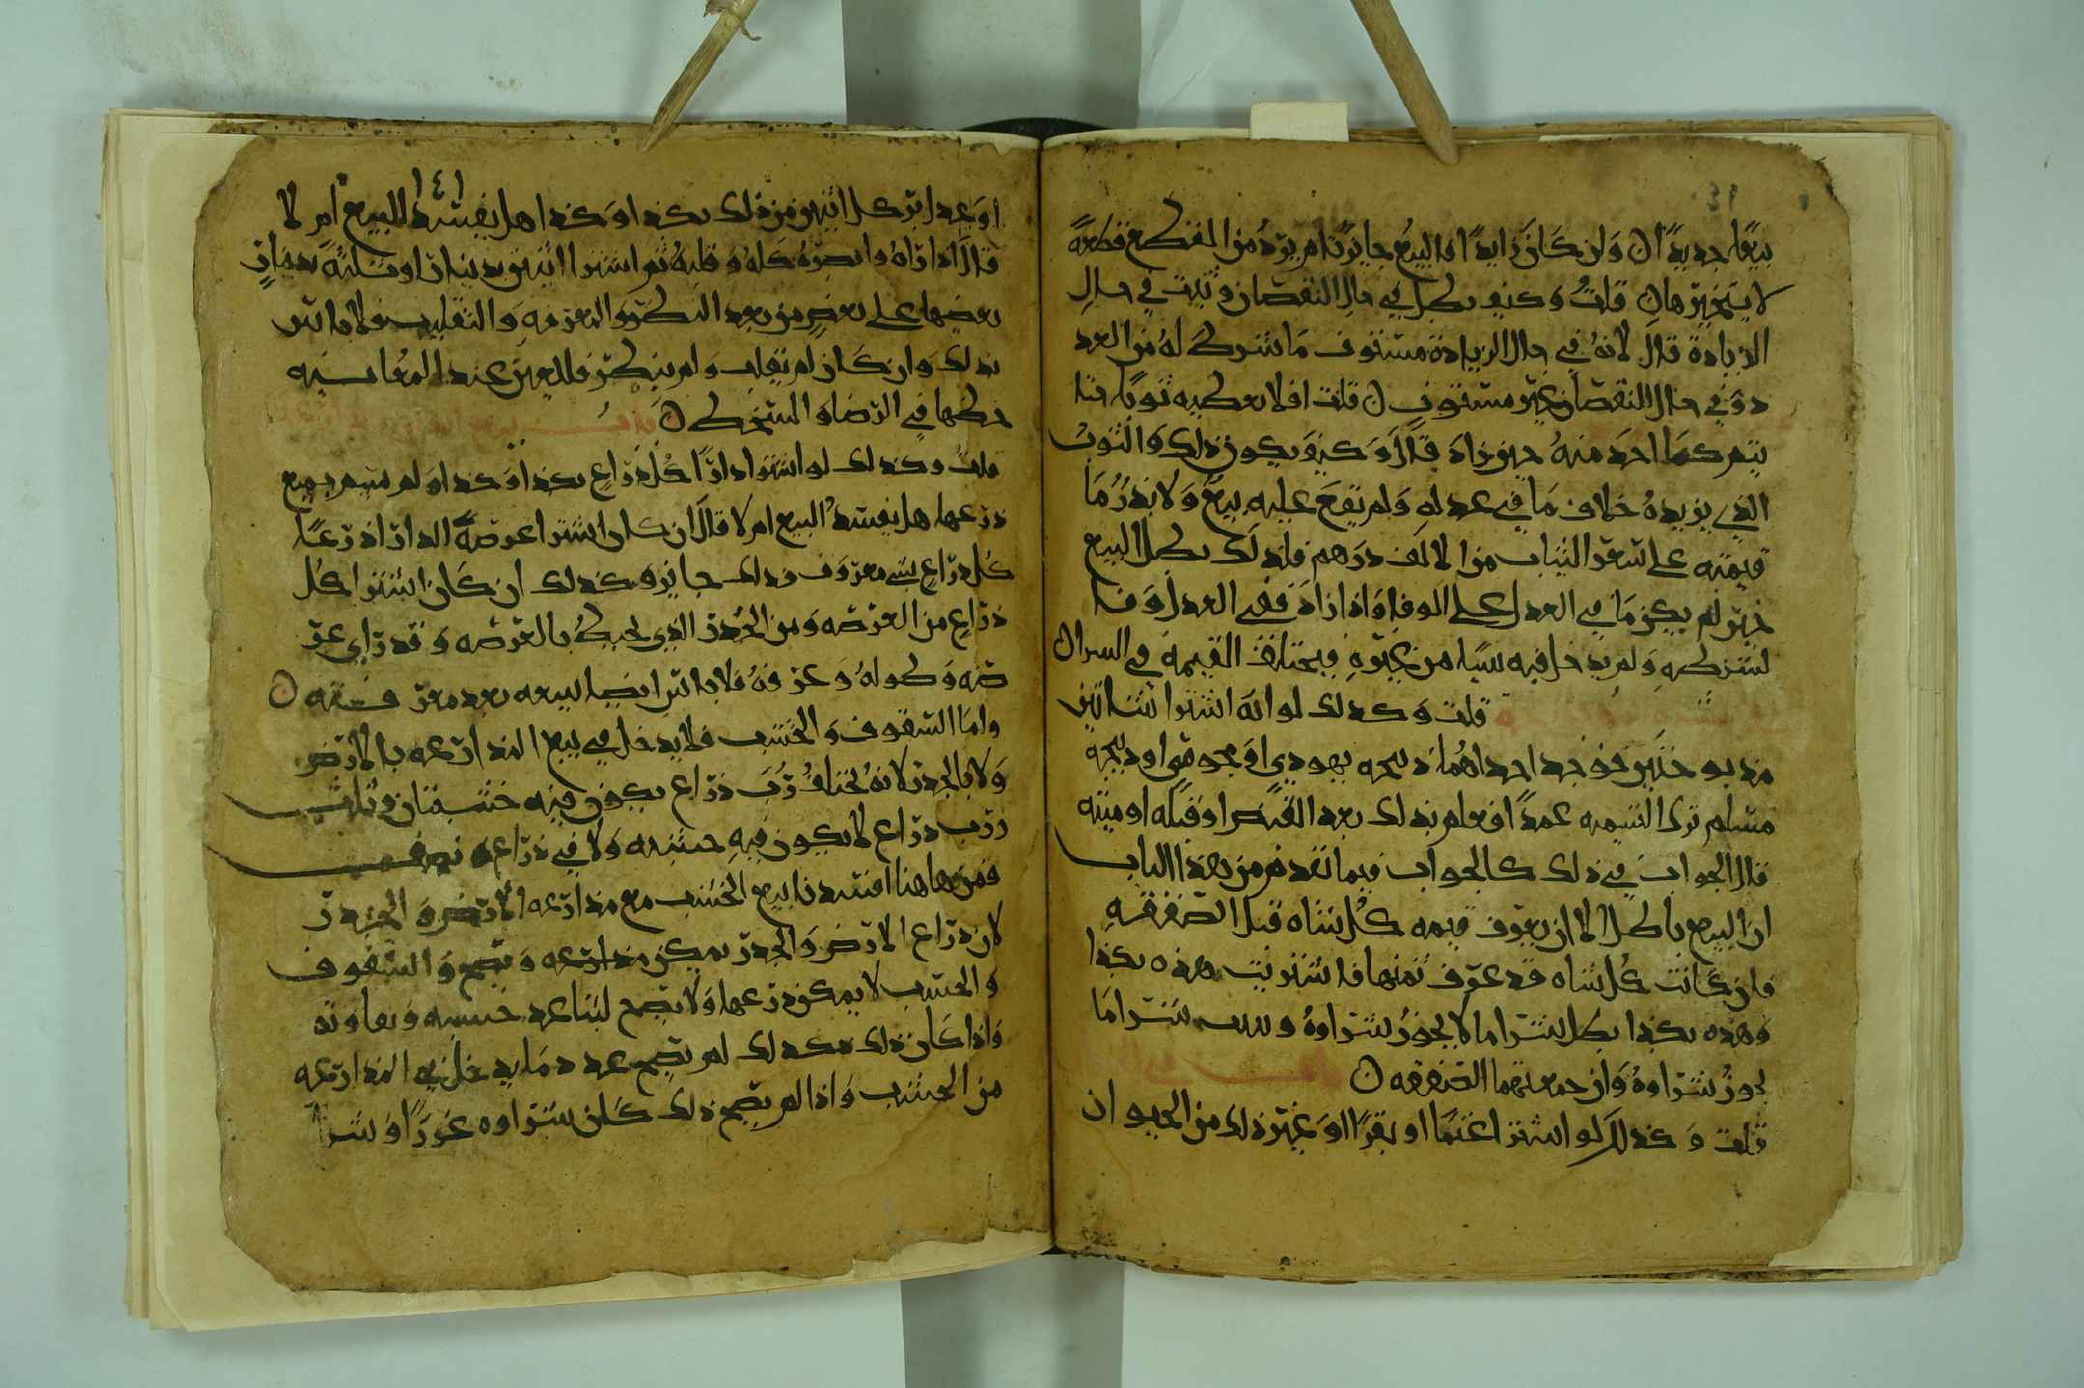 بيعًا جديدًا ن وان كان زايدًا فالبيع جايز ثم يرد من المقطع قطعة
لا يتخير هان قلت وكيف بطل في حال النقصان وثبت في حال
الزيادة قال لانه في حال الزيادة مستوف ما شرط له من العدد
وفي حال النقصان غير مستوف ن قلت افلا يعطيه ثوبًا
يتم كما اخذ منه حين زاد قال وكيف يكون ذلك والثوب
الذي يزيده خلاف ما في عدله ولم يقع عليه بيع ولا يدرا ما
قيمته على سعر الثياب من الالف درهم فلذلك بطل البيع
حين لم يكن ما في العدل على الوفا واذا زاد ففي العدل وفا
لشرطه ولم يدخل فيه شيا من غيره فيختلف القيمة في السرا ن
قلت وكذلك لو انه اشترا شاتين
مذبوحتين فوجد احداهما ذبيحه يهودي او مجوسي او ذبيحه
مسلم ترك التسميه عمدًا فعلم بذلك بعد القبض او قبله او ميته
قال الجواب في ذلك كالجواب فيما تقدم من هذا الباب
ان البيع باطل الا ان يعرف قيمه كل شاه قبل الصفقه
فان كانت كل شاه قد عرف ثمنها فاشتريت هذه بكذا
وهذه بكذا بطل شرا ما لا يجوز شراوه وثبت شرا ما
يجوز شراوه وان جمعتهما الصفقه ن
قلت وكذلك لو اشترا غنمًا او بقرًا او غير ذلك من الحيوان
١٤١
او عددا بر كل اثنين من ذلك بكذا وكذا هل يفسد البيع ام لا
قال اذا راه وابصره كله وقلبه ثم اشترا اثنين بدينار او ثلثه بدينار
بعضها على بعض من بعد النظر والمعرفه والتقليب فلا باس
بذلك وان كان لم يقلب ولم ينظر فالعين عند المعاينه
حظها في الرضا والسخط ن
قلت وكذلك لو اشترا دارًا كل ذراع بكذا وكذا ولم يسم جميع
ذرعها هل يفسد البيع ام لا قال ان كان اشترا عرصة الدار اذرعًا
كل ذراع بشي معروف فذلك جايز وكذلك ان كان اشترا كل
ذراع من العرصه ومن الجدر الذي يحيط بالعرصه وقد راى عر
ضه وطوله وعرفه فلا باس ايضا ببيعه بعد معرفته ن
واما السقوف والخشب فلا يدخل في بيع المذارعه بالارض
ولا بالجدر لانه يختلف رب ذراع يكون فيه خشبتان وثلث
ورب ذراع لا يكون فيه خشبه ولا في ذراع ونصف
فمن هاهنا افسدنا بيع الخشب مع مذارعه الارض والجدر
لان ذراع الارض والجدر يمكن مذارعه ويصح والسقوف
والخشب لا يمكن ذرعها ولا يصح لنا عدد خشبه وتفاوته
واذا كان ذلك كذلك لم يصح عدد ما يدخل في المذارعه
من الخشب واذا لم يصح ذلك كان شراوه غررًا وشرا